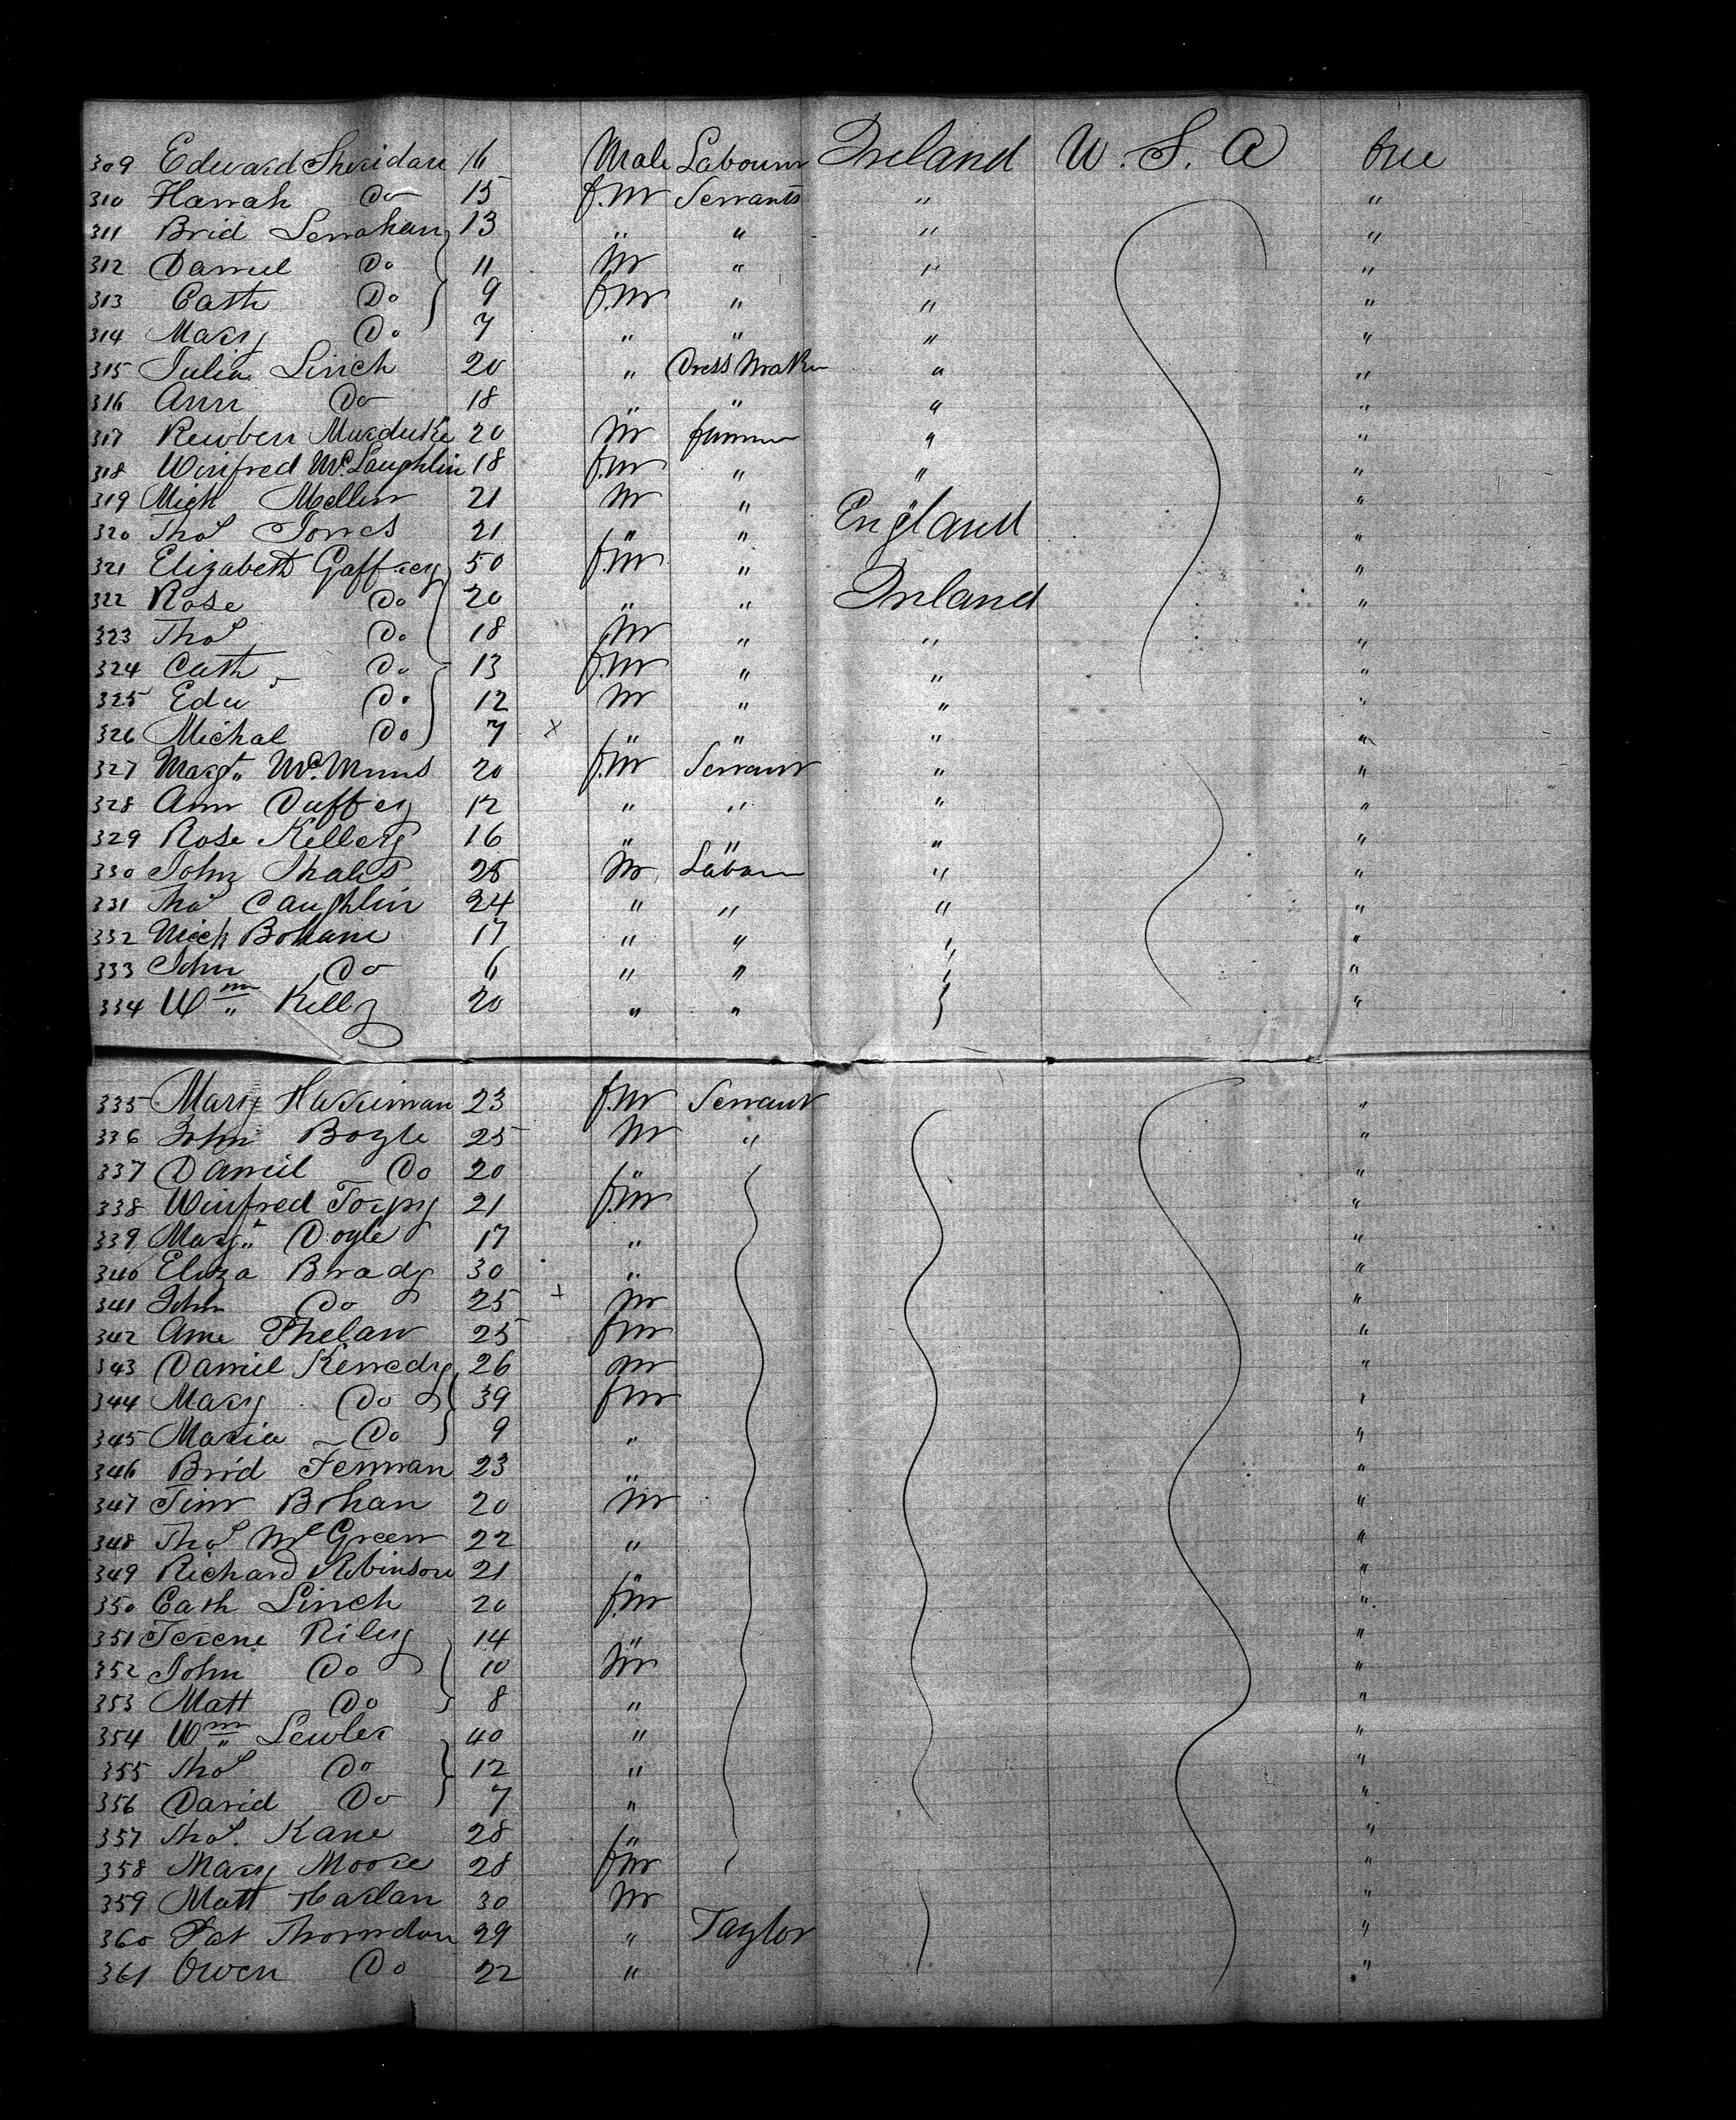 309 Edward Sheridan 16 Male Labourer Ireland U. S. A free
310 Hanah Do 15 f.m Servants " "
311 Brid Lenahan 13 " " " "
312 Daniel Do 11 M " " "
313 Cath Do 9 f.m " " "
314 Mary Do 7 " " " "
315 Julia Linch 20 " Dress Maker " "
316 Ann Do 18 " " " "
317 Rewben Murduke 20 M farmer " "
318 Winifred McLaughlin 18 f.m " " "
319 Mich Mellen 21 M " " "
320 Thos Jones 21 " " England "
321 Elizabeth Gaffney 50 f.m " "
322 Rose Do 20 " " Ireland "
323 Thos Do 18 M " " "
324 Cath Do 13 f.m " " "
325 Edw Do 12 M " " "
326 Michal Do 7 x " " " "
327 Margt McManus 20 f.m Servant " "
328 Ann Duffey 12 " " " "
329 Rose Kelley 16 " " " "
330 John 25 M Labour " "
331 Thos Caughlin 24 " " " "
332 Mick Bohane 17 " " " "
333 John Do 6 " " " "
334 Wm Killy 20 " " " "
335 Mary 23 f.m Servant "
336 John Boyle 25 M " "
337 Daniel Do 20 " "
338 Winifred Torpy 21 f.m "
339 Margt Doyle 17 " "
340 Eliza Brady 30 " "
341 John Do 25 + M "
342 Ann Phelan 25 fm "
343 Daniel Kenedy 26 M "
344 Mary Do 39 fm "
345 Maria Do 9 " "
346 Brid Fennan 23 " "
347 Tim Bohan 20 M "
348 Thos McGreen 22 " "
349 Richard Robinson 21 "
350 Cath Linch 20 f.m "
351 Terene Riley 14 " "
352 John Do 10 M "
353 Matt Do 8 " "
354 Wm Lewler 40 " "
355 Thos Do 12 " "
356 David Do 7 " "
357 Thos. Kane 28 " "
358 Mary Moore 28 fm "
359 Matt Harlan 30 M "
360 Pat Thorndon 29 " Taylor "
361 Owen Do 22 " "